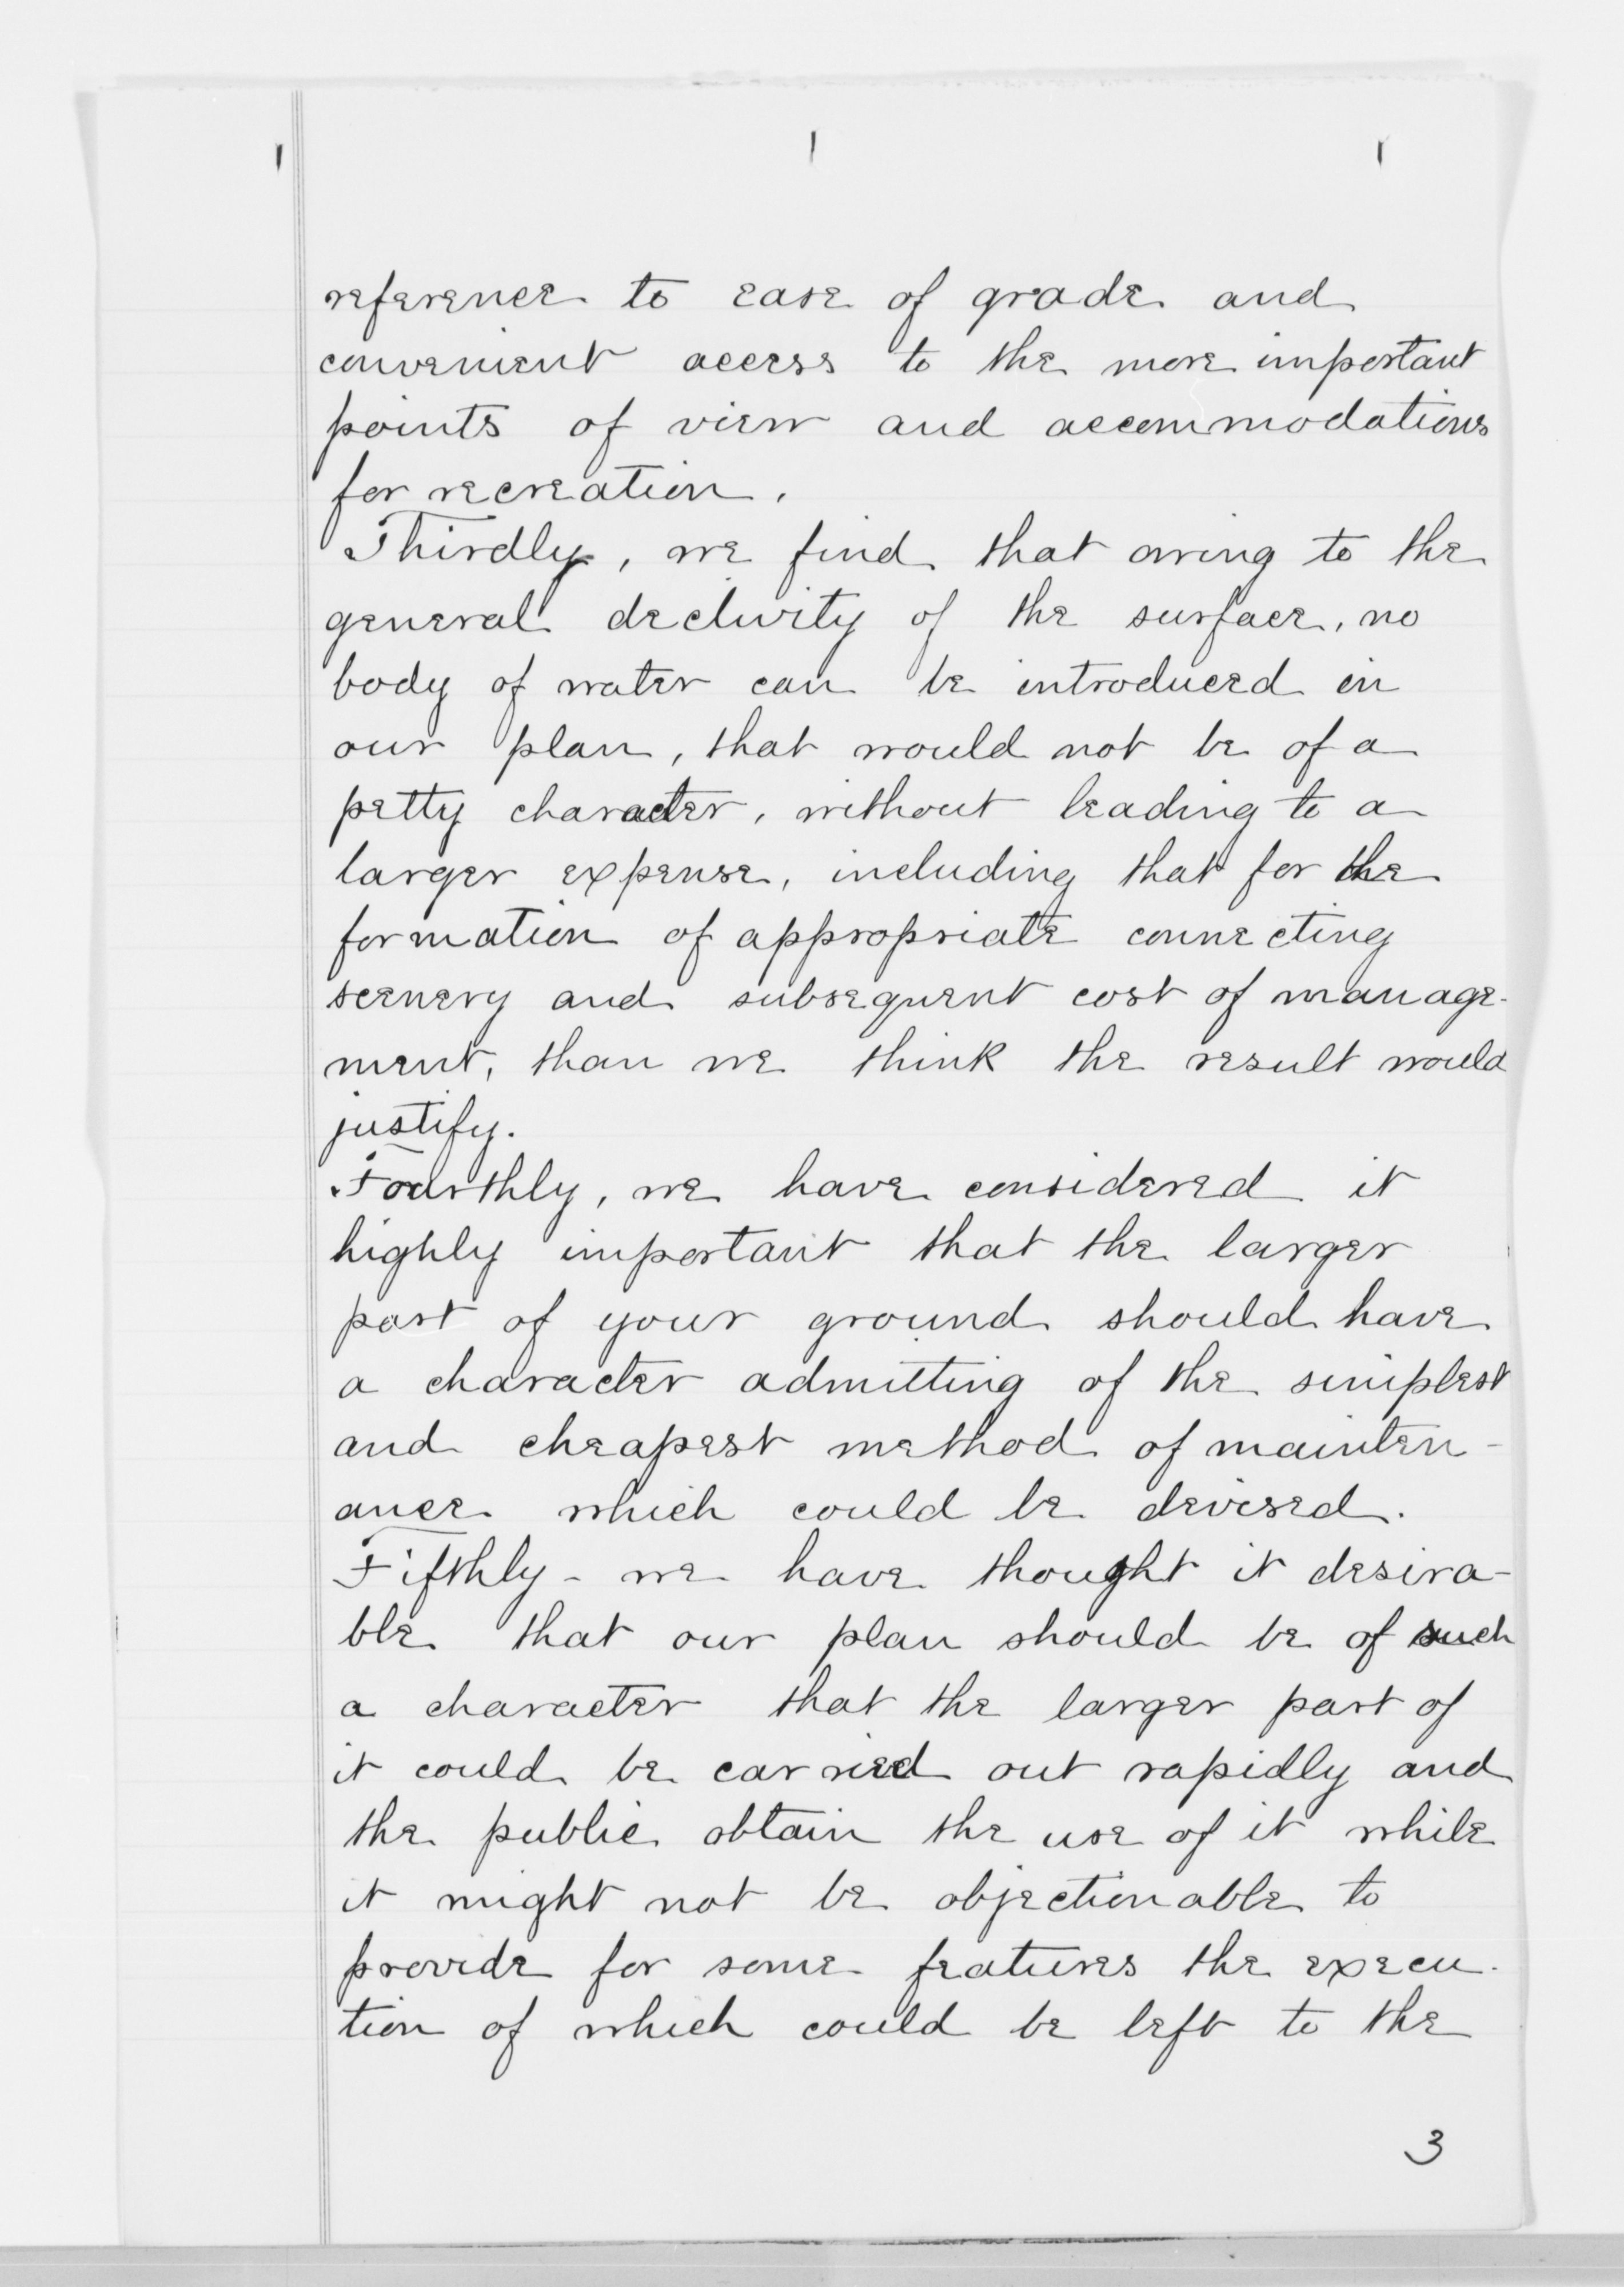 reference to ease of grade and
convenient access to the more important
points of view and accommodations
for recreation.
Thirdly, we find that owing to the
general declivity of the surface, no
body of water can be introduced in
our plan, that would not be of a
petty character, without leading to a
larger expense, including that for the
formation of appropriate connecting
scenery and subsequent cost of manage-
ment, than we think the result would
justify.
Fourthly, we have considered it
highly important that the larger
part of your ground should have
a character admitting of the simplest
and cheapest method of mainten-
ance which could be devised.
Fifthly - we have thought it desira-
ble that our plan should be of such
a character that the larger part of
it could be carried out rapidly and
the public obtain the use of it while
it might not be objectionable to
provide for some features the execu-
tion of which could be left to the
3